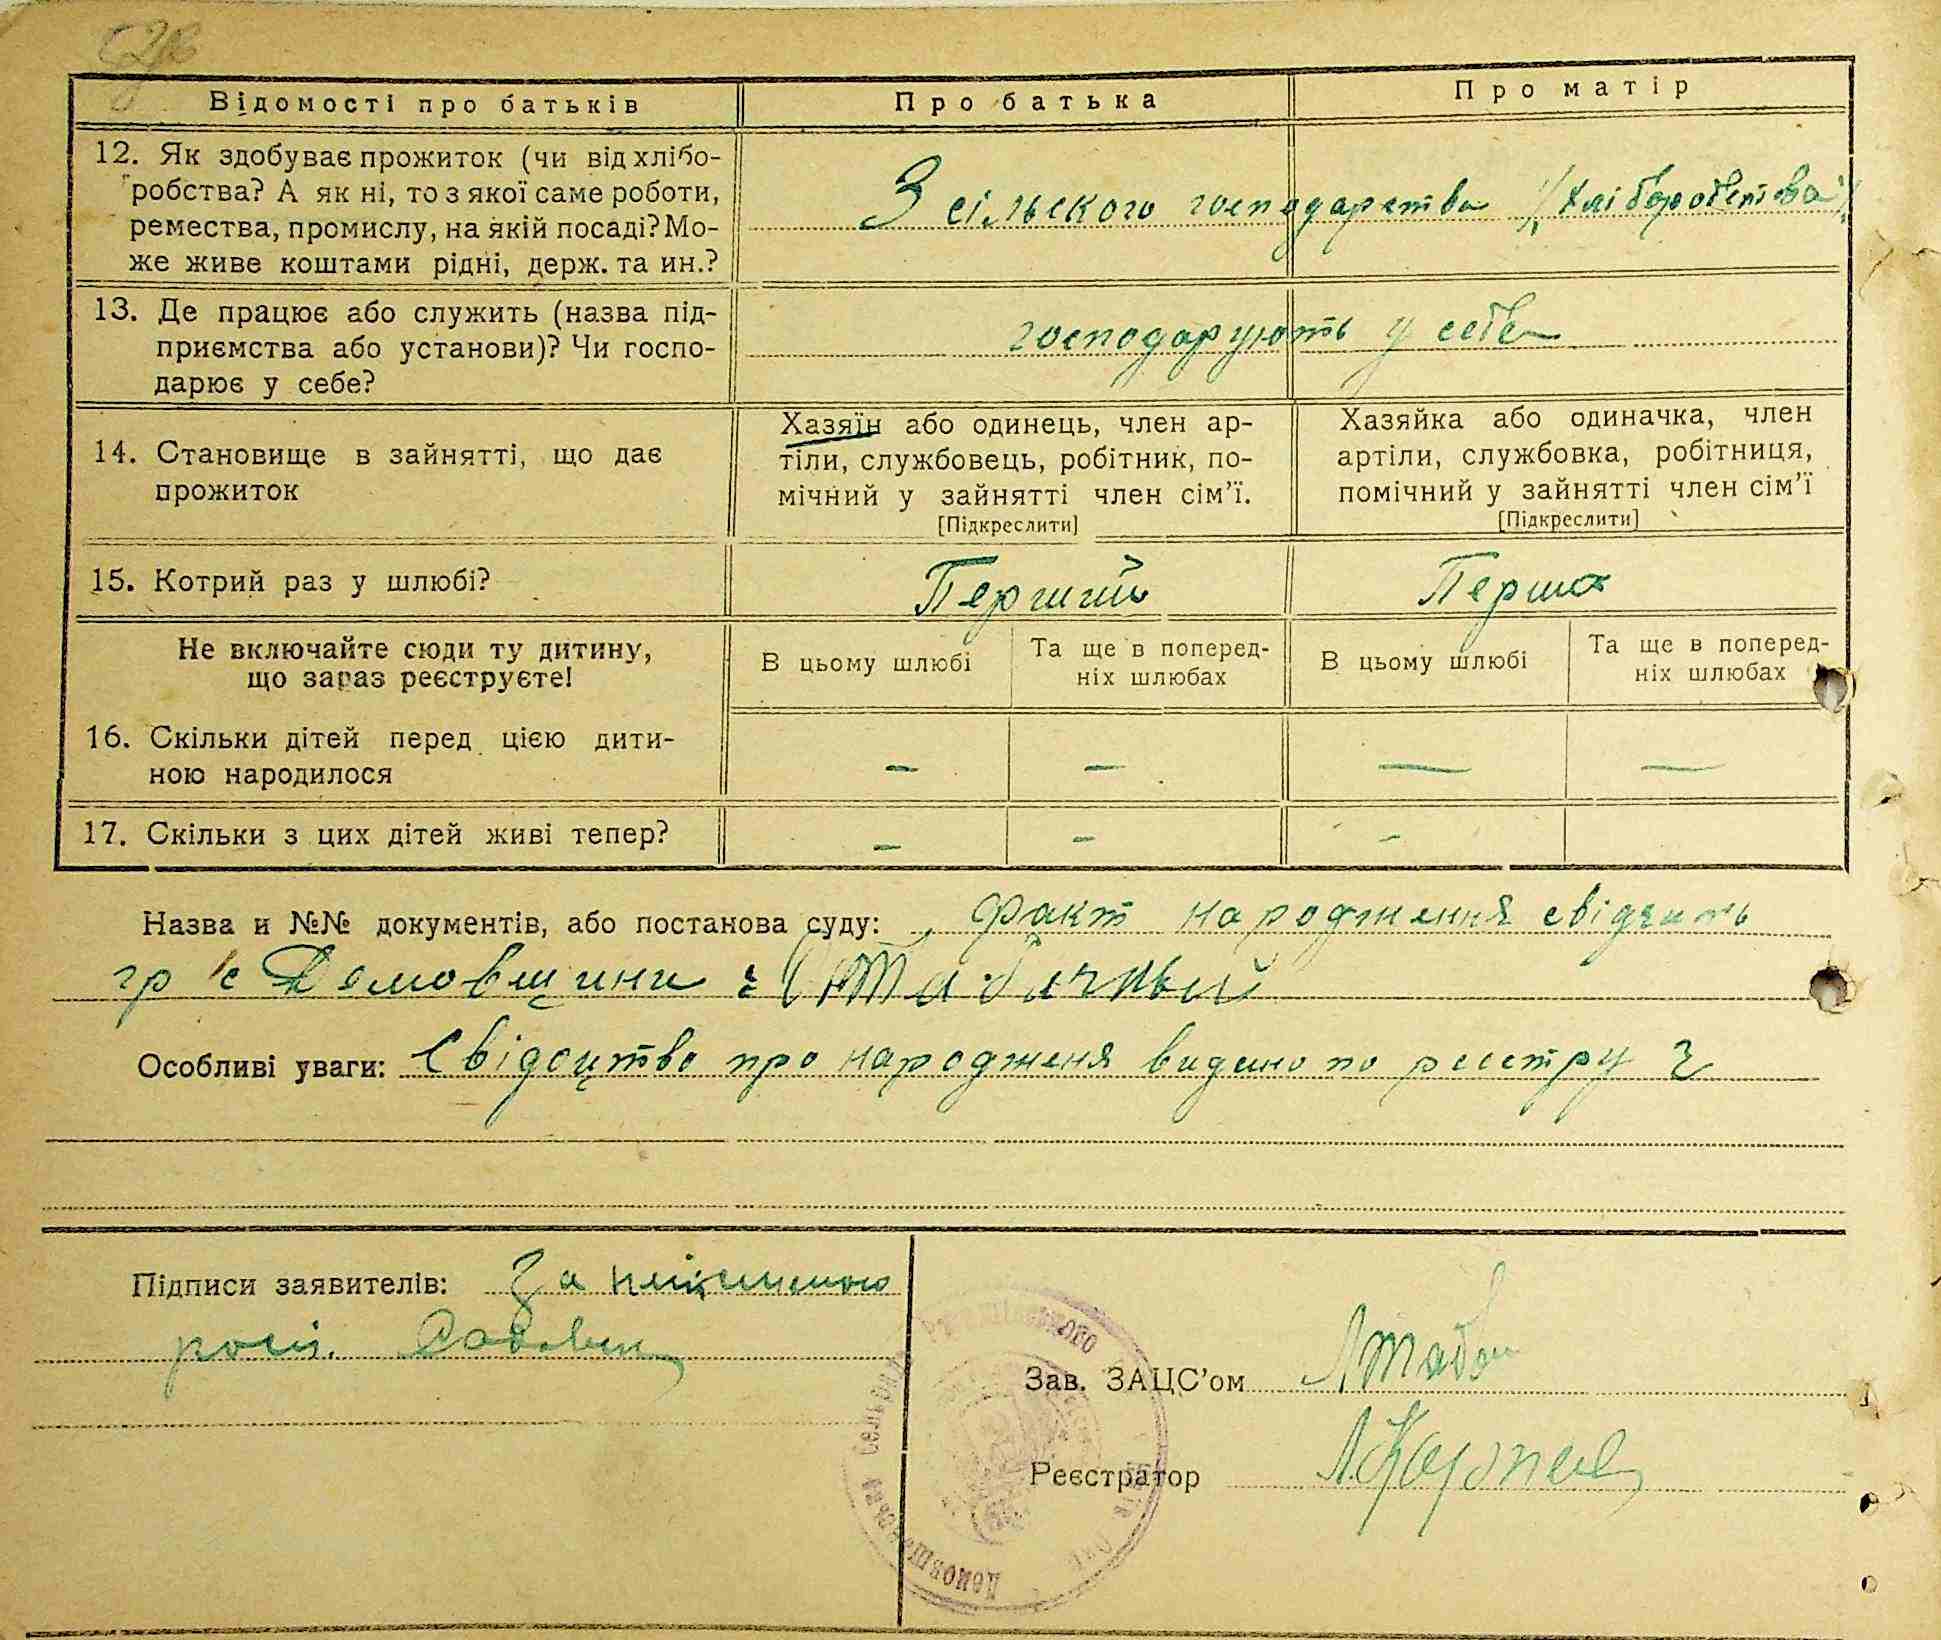 Відомості про батьків
Про батька
Про матір
12. Як здобуває прожиток (чи від хлібо-
робства? А як ні, то з якої саме роботи,
ремества, промислу, на якій посаді? Мо-
же живе коштами рідні, держ. та ин.?
З сільського господарства /хліборобства/
13. Де працює або служить (назва під-
приємства або установи)? Чи госпо-
дарює у себе?
господарують у себе
14. Становище в зайнятті, що дає
прожиток
Хазяїн або одинець, член ар-
тіли, службовець, робітник, по-
мічний у зайнятті член сім’ї.
[Підкреслити]
Хазяйка або одиначка, член
артіли, службовка, робітниця,
помічний у зайнятті член сім’ї
[Підкреслити]
15. Котрий раз у шлюбі?
Перший
Перша
Не включайте сюди ту дитину,
що зараз реєструєте!
В цьому шлюбі
Та ще в поперед-
ніх шлюбах
В цьому шлюбі
Та ще в поперед-
ніх шлюбах
16. Скільки дітей перед цією дити-
ною народилося
— — — —
17. Скільки з цих дітей живі тепер?
— — —
Назва и №№ документів, або постанова суду: Факт народження свідчить
гр с Домовщини
Особливі уваги: Свідоцтво про народженя видано по реєстру
Підписи заявителів: За
Зав. ЗАЦС’ом
Реєстратор